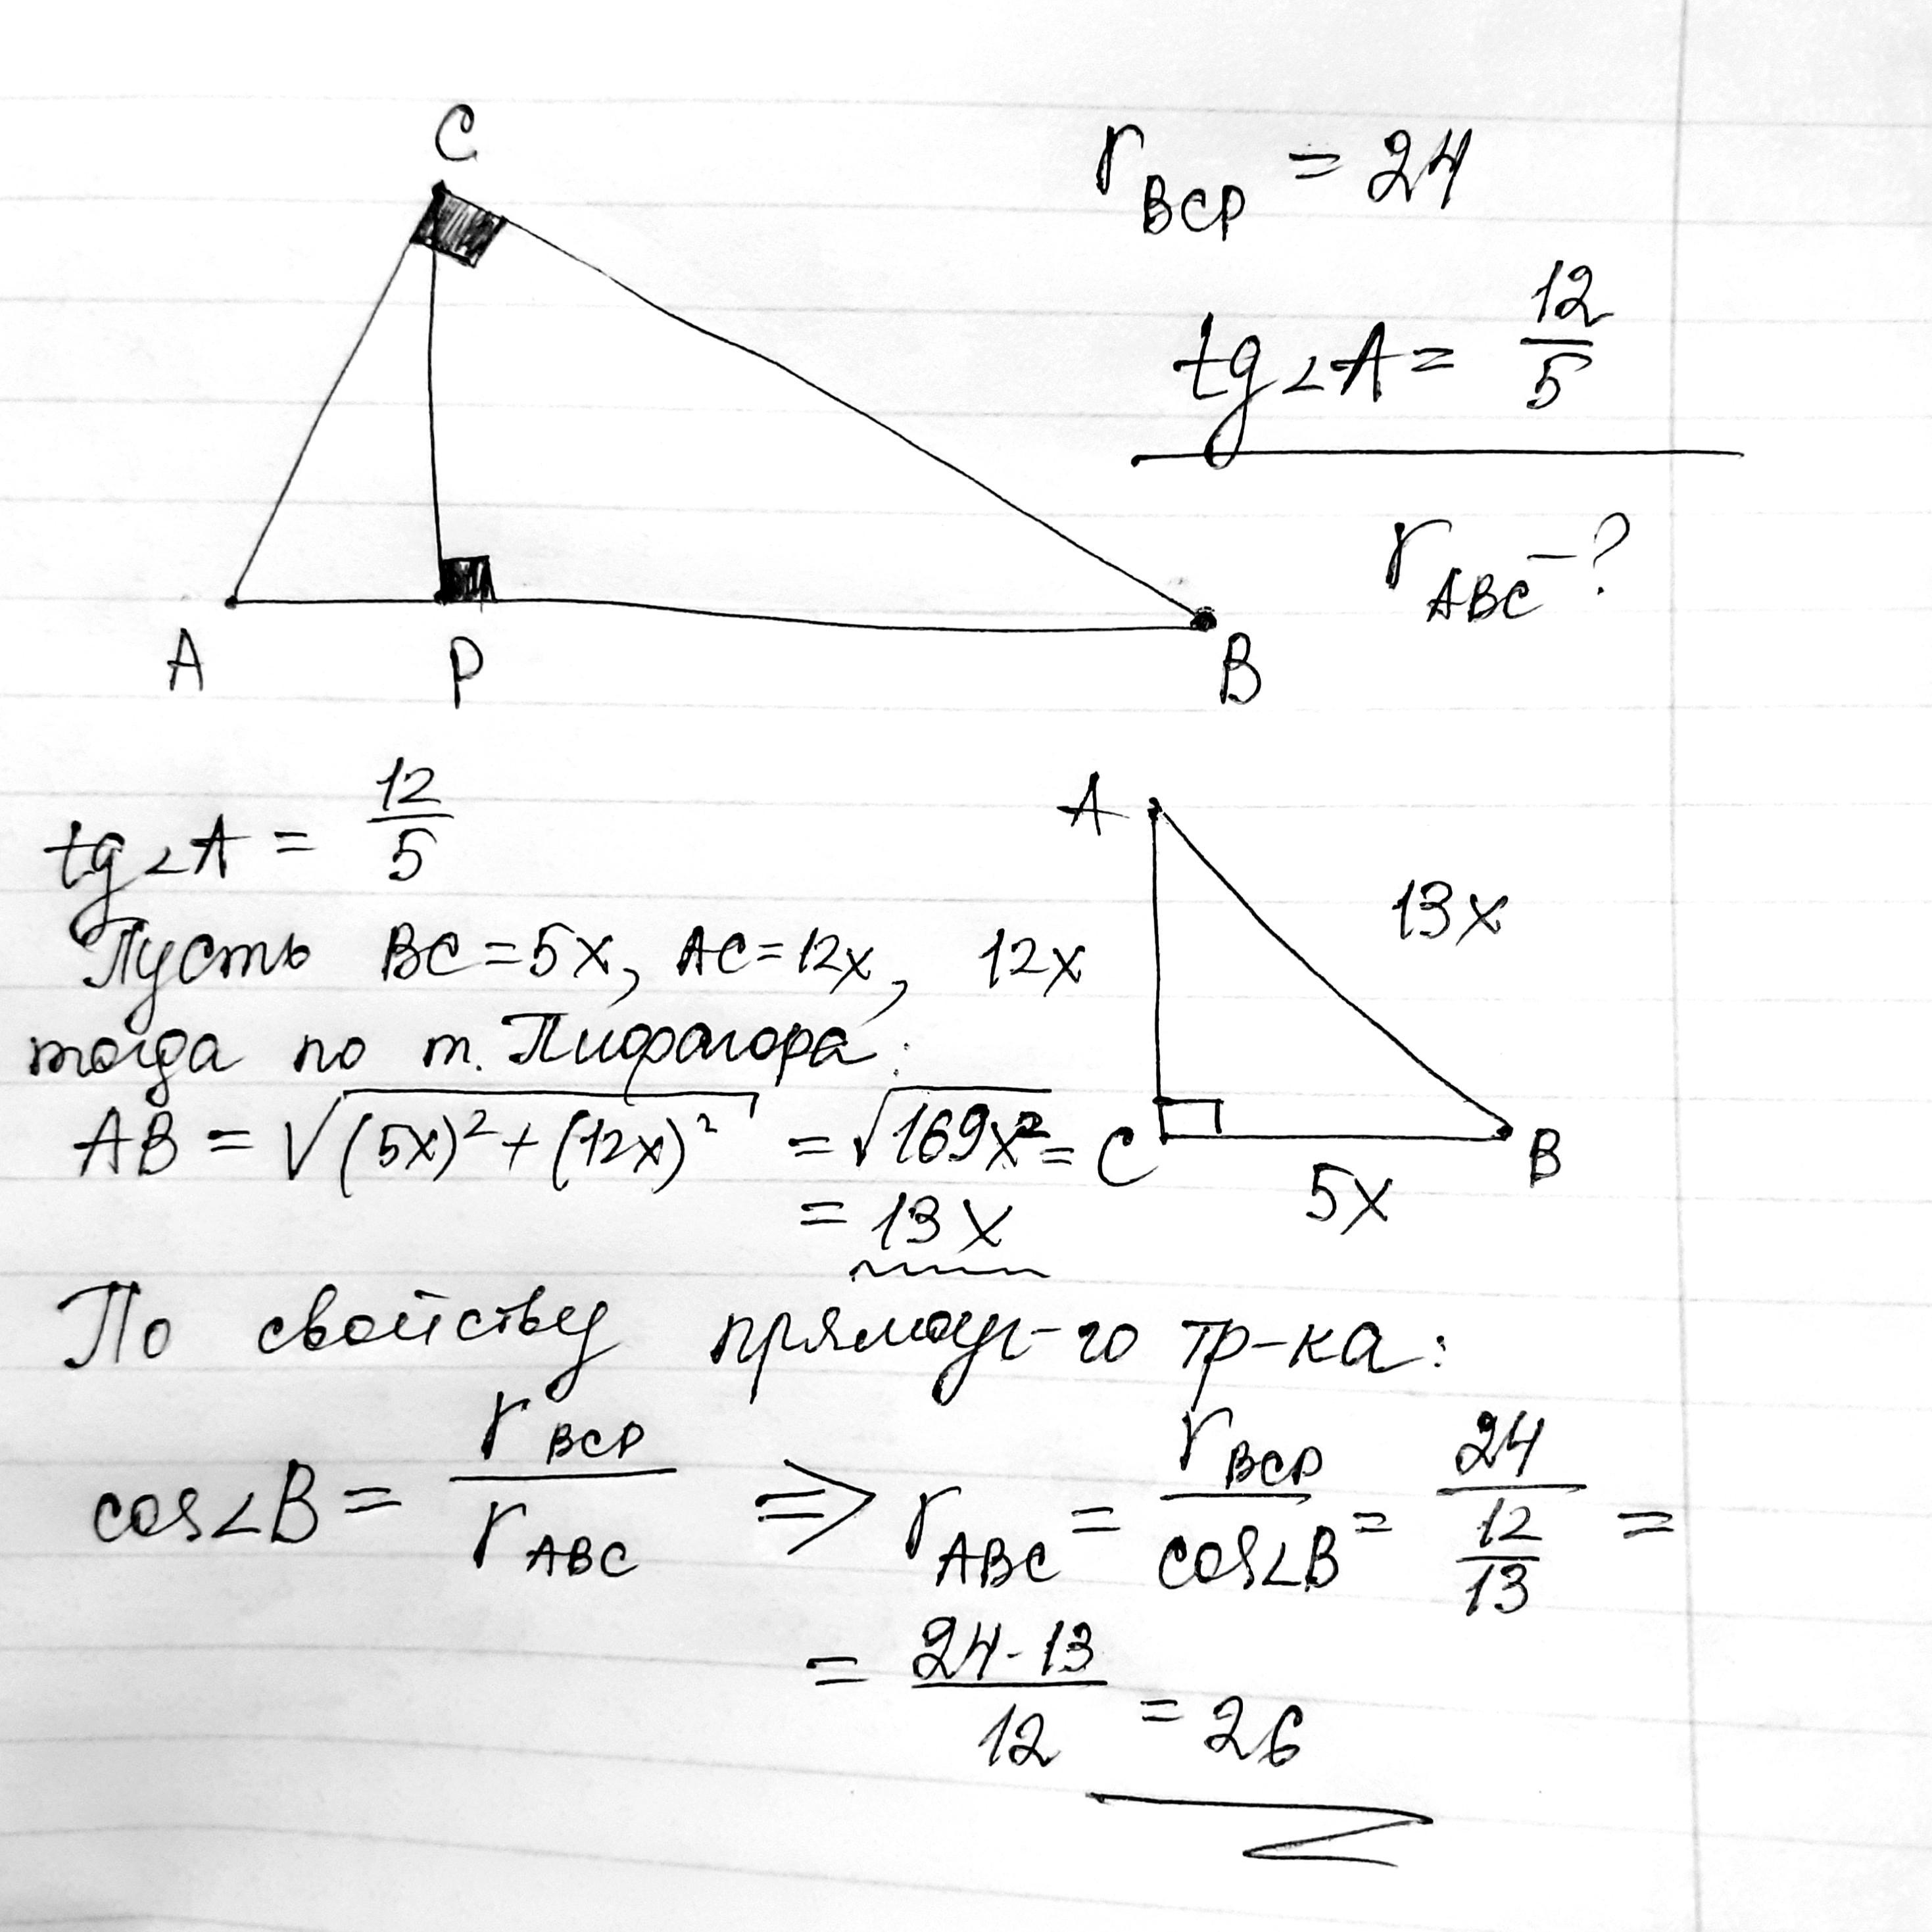 C
r_BCP = 24
tg∠A = 12/5
r_ABC - ?
A P B
tg∠A = 12/5
A
13x
Пусть BC = 5x, AC = 12x,
12x
тогда по т. Пифагора:
AB = √((5x)² + (12x)²) = √(169x²) =
C B
= 13x
5x
По свойству прямоуг-го тр-ка:
cos∠B = r_BCP/r_ABC ⇒ r_ABC = r_BCP/cos∠B = 24/(12/13) =
= (24·13)/12 = 26